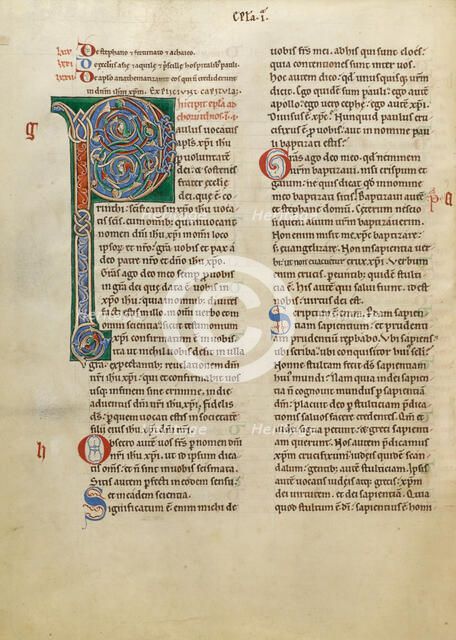 Cpła.i.ª
lxx De stephano ⁊ fortunato ⁊ achaico.
lxxi De ecclis asię ⁊ aquilę ⁊ p̄scillę hospitalib; pauli.
lxxii De aplo anathematizante eos qui ñ crediderunt
in dñm ihm xp̄m. Expliciunt capitula;
Incipit epła ad
chorinthios .i.
Paulus vocatus
apłs xp̄i ihu
p voluntatē
dei. ⁊ sostenes
frater ecclię
dei. quę ē co
rinthi. scificatis in xp̄o ihu voca
tis scis. cum omnib; qui inuocant
nomen dñi ihu xp̄i in omni loco
ipsoꝝ ⁊ nr̄o: gr̄a uobis ⁊ pax a
deo patre ⁊ dño nr̄o ihu xp̄o.
Gr̄as ago deo meo semp p uobis
in gr̄a dei quę data ē uobis in
xp̄o ihu: quia in omnib; diuites
facti estis in illo. in omni uerbo ⁊ in
omni scientia: sicut testimonium
xp̄i confirmatū ē in uobis:
ita ut nichil uobis desit in ulla
gr̄a: expectantib; reuelationem dñi
nr̄i ihu xp̄i: qui ⁊ confirmabit uos
usq; in finem sine crimine. in die
aduentus dñi nr̄i ihu xp̄i. Fidelis
ds: p quem uocati estis in societatē
filii eius ihu xp̄i. dñi nr̄i.
Obsecro autē vos fr̄s p nomen dñi
nr̄i ihu xp̄i. ut id ipsum dica
tis om̄s: ⁊ ñ sint in uobis scismata.
Sitis autem pfecti in eodem sensu:
⁊ in eadem scientia.
Significatum ē enim michi de
uobis fr̄s mei. ab his qui sunt cloes:
quia contentiones sunt inter uos.
Hoc autem dico: qd unusquisq; ur̄m
dicit: Ego quidē sum pauli: ego autē
apollo: ego uero cephę: ego autē xp̄i:
Diuisus ē xp̄c? Nunquid paulus cru
cifixus ē p uobis? aut in nomine pau
li baptizati estis?
Gr̄as ago deo meo: qd neminem
ur̄m baptizaui. nisi crispum ⁊
gaium: ne quis dicat qd in nomine
meo baptizati estis. Baptizaui autē
⁊ stephanę domū. Ceterum nescio
si quem aliū ur̄m baptizauerim.
Non enim misit me xp̄c baptizare:
s; euangelizare. Non in sapientia uer
bi: ut non euacuetur crux xp̄i. Verbum
enim crucis. pereuntib; quidē stulti
tia ē: his autē qui salui fiunt. id ē
nobis: uirtus dei est.
Scriptum ē enim: Pdam sapien
tiam sapientium: ⁊ prudentiam
prudentium reprobabo. Vbi sapiens?
ubi scriba? ubi conquisitor hui; seculi?
Nonne stultam fecit ds sapientiam
huius mundi? Nam quia in dei sapien
tia ñ cognouit mundus p sapientiam
dm: placuit deo p stulticiam p̄dica
tionis saluos facere credentes. Qm̄ ⁊
iudei signa petunt: ⁊ greci sapienti
am querunt. Nos autem p̄dicamus
xp̄m crucifixum: iudeis quidē scan
dalum: gentib; autē stulticiam: Ipsis
autē uocatis iudeis atq; grecis: xp̄m
dei uirtutem. ⁊ dei sapientiam. Quia
quod stultum ē di: sapientius ē homi
g
h
a